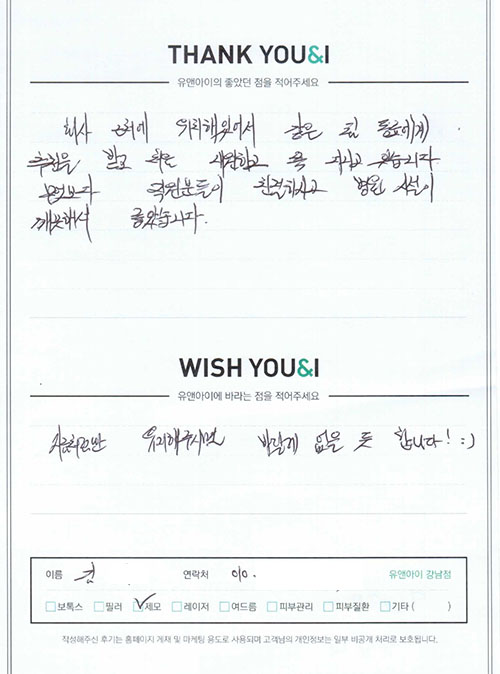 THANK YOU&I
유앤아이의 좋았던 점을 적어주세요
회사 근처에 위치해있어서 같은 팀 동료에게
추천을 받고 왔는데 친절하고 잘 해주고 있습니다
무엇보다 직원분들이 친절하시고 병원 시설이
깨끗해서 좋았습니다.
WISH YOU&I
유앤아이에 바라는 점을 적어주세요
지금처럼만 유지해주시면 바랄게 없을 듯 합니다! :)
이름 김 연락처 010. 유앤아이 강남점
보톡스 필러 제모 레이저 여드름 피부관리 피부질환 기타 ( )
작성해주신 후기는 홈페이지 게재 및 마케팅 용도로 사용되며 고객님의 개인정보는 일부 비공개 처리로 보호됩니다.